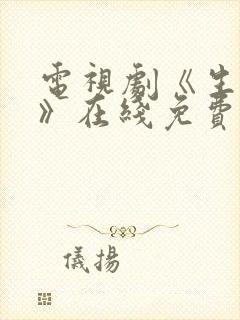 電視劇《生
》在綫免費
儀揚